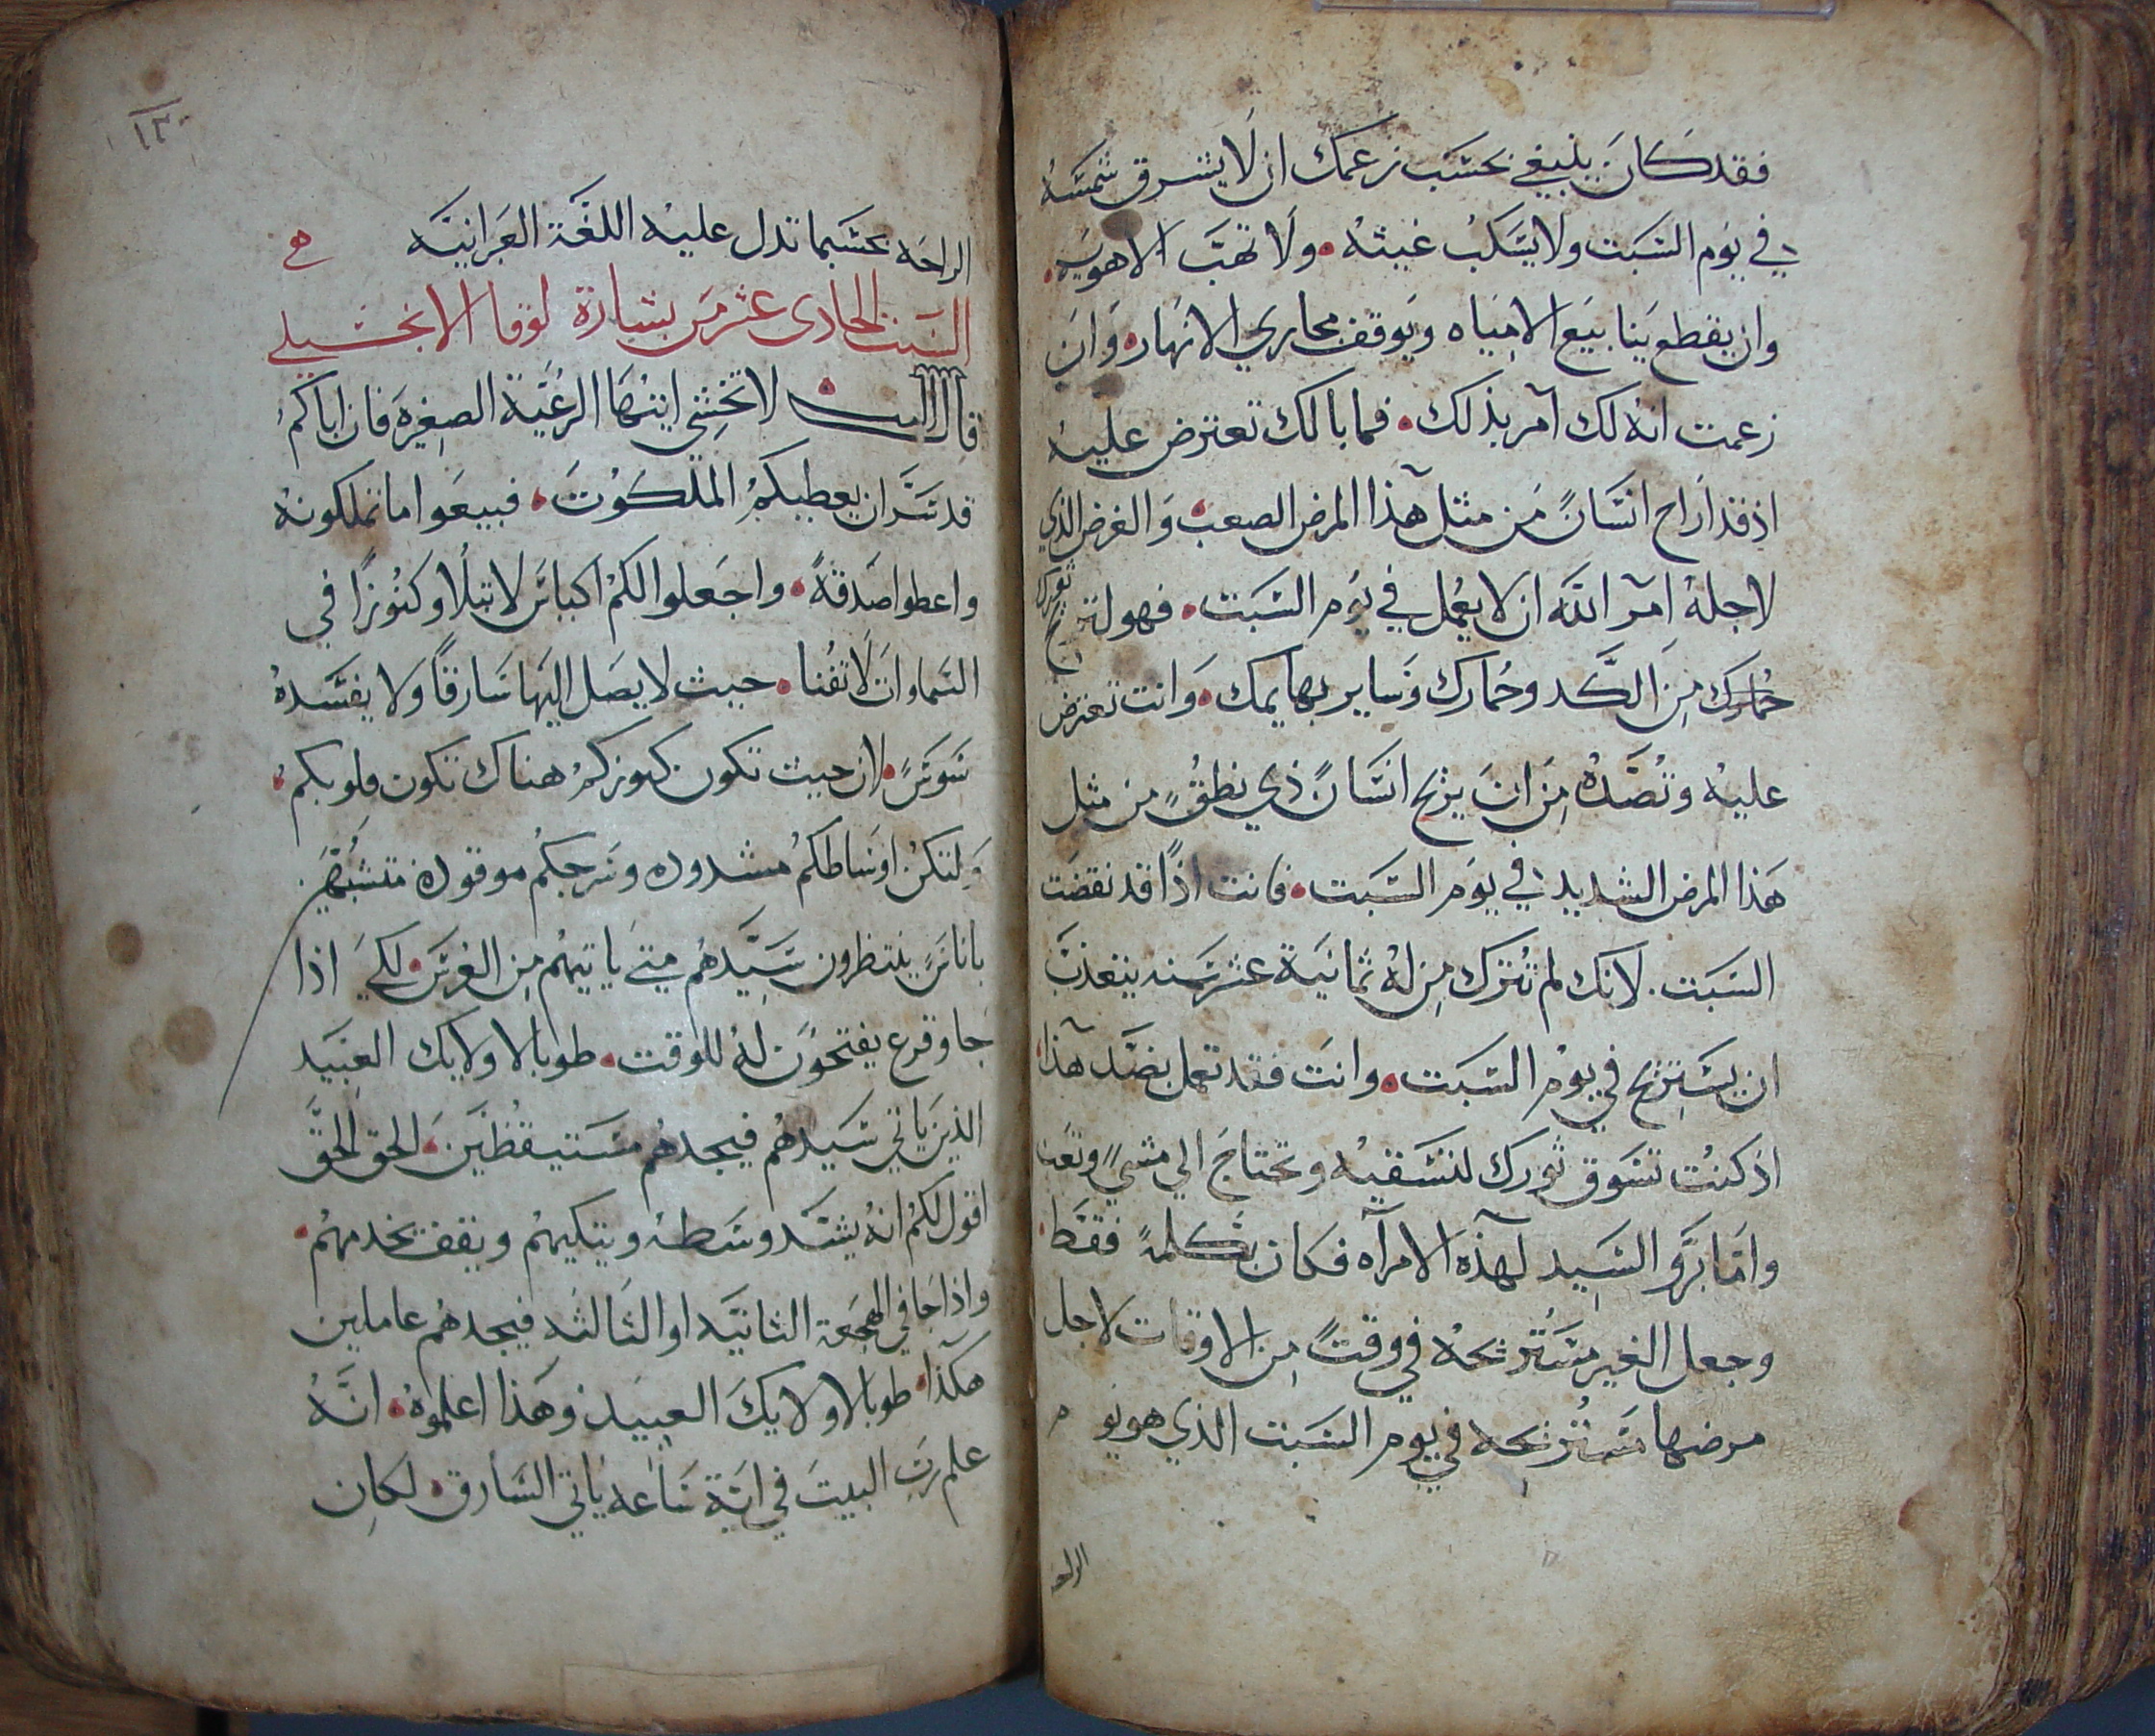 فقد كان ينبغي بحسب زعمك ان لا يشرق شمسه
في يوم السبت ولا يسكب غيثه • ولا تهب الاهوية •
وان يقطع ينابيع الامياه ويوقف مجاري الانهار • وان
زعمت انه لك آمر بذلك • فما بالك تعترض عليه
اذ قد اراح انسانً من مثل هذا المرض الصعب والغرض الذي
لاجله امر الله ان لا يعمل في يوم السبت • فهو لتريح
ثورك
حمارك من الكد وحمارك وساير بهايمك • وانت تعترض
عليه وتصده من ان يريح انسانً ذي نطقٍ من مثل
هذا المرض الشديد في يوم السبت • فانت اذًا قد نقضت
السبت . لانك لم تترك من له ثمانية عشر سنه يتعذب
ان يستريح في يوم السبت • وانت فقد تعمل بضد هذا
اذ كنت تسوق ثورك لتسقيه وتحتاج الي مشيٍ وتعب
واما برو السيد لهذه الامراه فكان بكلمةً فقط •
وجعل الغير مستريحه في وقتً من الاوقات لاجل
مرضها مستريحه في يوم السبت الذي هو يوم
الراحه
١٣٠
الراحه بحسبما تدل عليه اللغة العبرانيه
السبت الحادى عشر من بشارة لوقا الانجيلي
قال الرب • لا تخشي ايتها الرعية الصغيره فان اباكم
قد سر ان يعطيكم الملكوت • فبيعوا ما تملكونه
واعطوا صدقةً • واجعلوا لكم اكياس لا تبلا وكنوزًا في
السماوات لا تفنا • حيث لا يصل اليها سارقاً ولا يفسده
سوسً • لان حيث تكون كنوزكم هناك تكون قلوبكم •
ولتكن اوساطكم مشدوده وسرجكم موقوده متشبهين
باناسٍ ينتظرون سيدهم متي ياتيهم من العرس • لكي اذا
جا وقرع يفتحون له للوقت • طوبا لاولايك العبيد
الذين ياتي سيدهم فيجدهم مستيقظين • الحق الحق
اقول لكم انه يشد وسطه ويتكيهم ويقف يخدمهم •
واذا جا في الهجعة الثانيه او الثالثه فيجدهم عاملين
هكذا • طوبا لاولايك العبيد وهذا اعلموه • انه
علم رب البيت في اية ساعه ياتي السارق • لكان